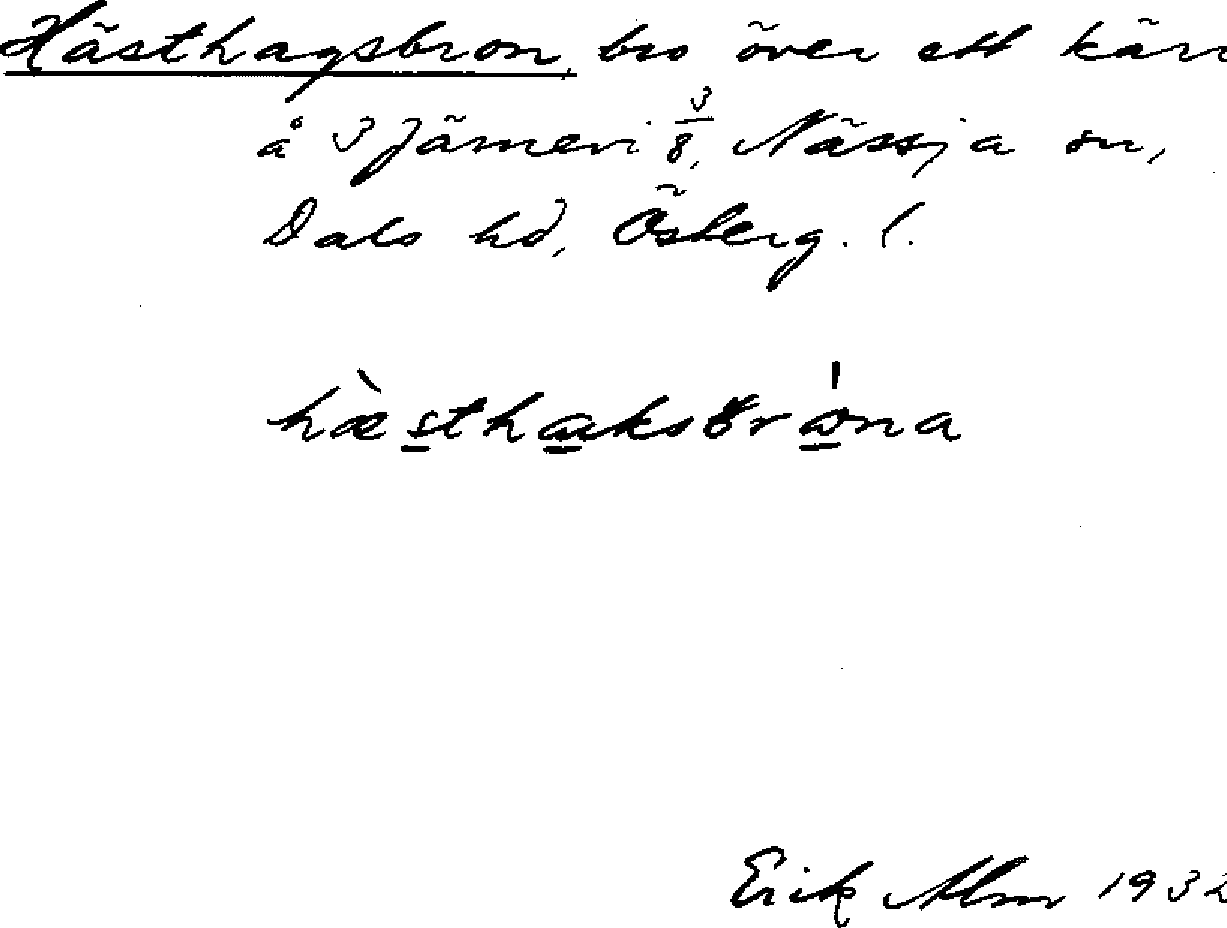 Hästhagsbron, bro över ett kärr
å 3 Järnevi 3/8, Nässja sn,
Dals hd, Österg. l.
hæ̀sthaksbrωna
Erik Alm 1932